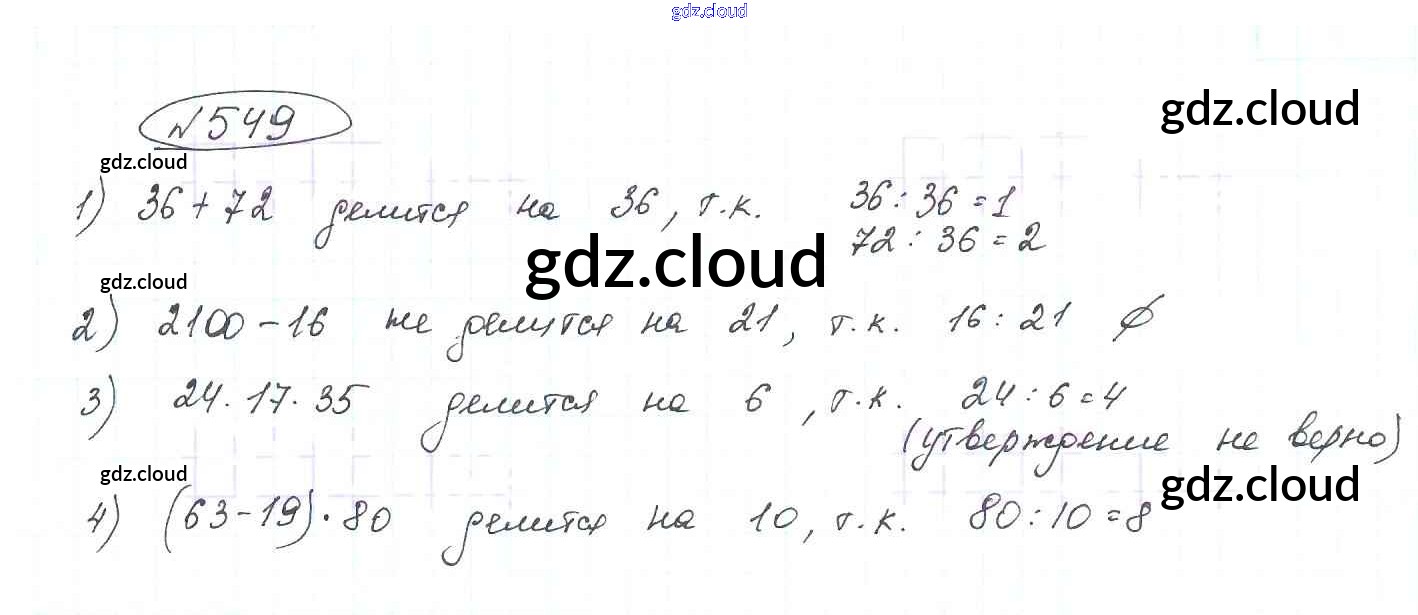 gdz.cloud
№549
gdz.cloud
gdz.cloud
1) 36 + 72 делится на 36, т.к. 36 : 36 = 1
72 : 36 = 2
gdz.cloud
gdz.cloud
2) 2100 - 16 не делится на 21, т.к. 16 : 21 ∅
3) 24 · 17 · 35 делится на 6, т.к. 24 : 6 = 4
(утверждение не верно)
gdz.cloud
gdz.cloud
4) (63 - 19) · 80 делится на 10, т.к. 80 : 10 = 8